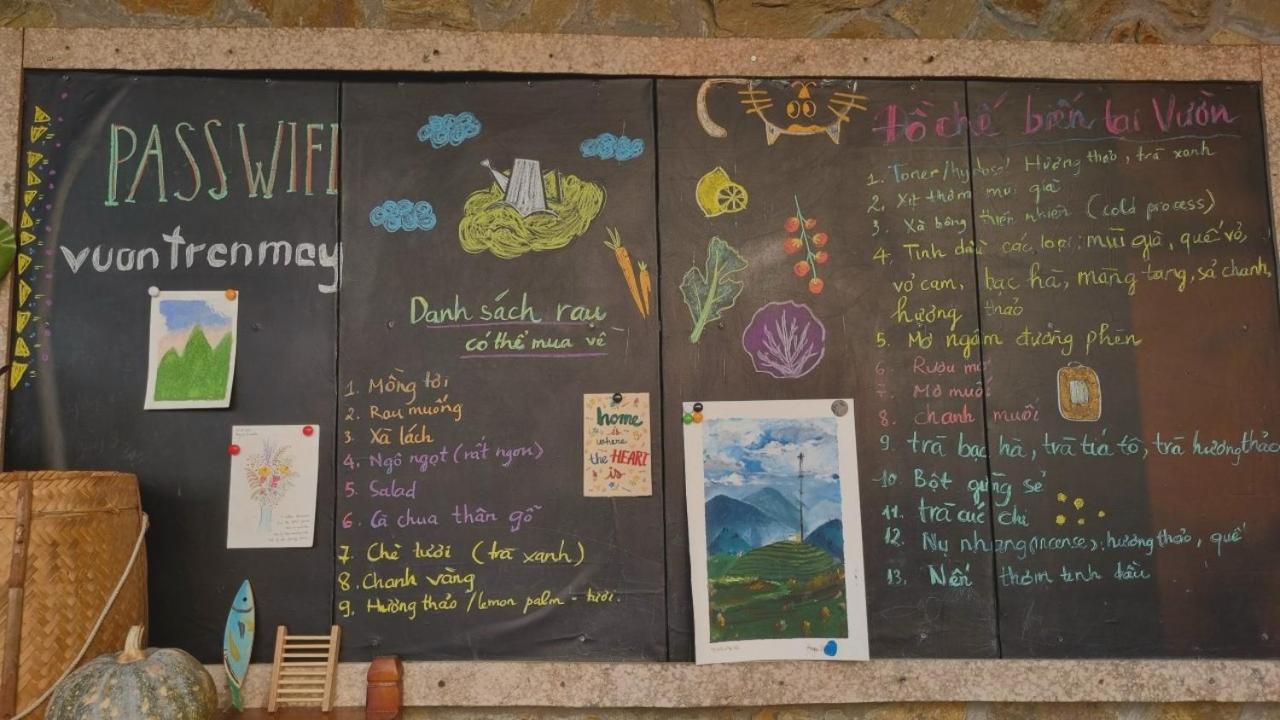 PASS WIFI
vuontrenmay
Danh sách rau
có thể mua về
1. Mồng tơi
2. Rau muống
3. Xà lách
4. Ngô ngọt (rất ngon)
5. Salad
6. Cà chua thân gỗ
7. Chè tươi (trà xanh)
8. Chanh vàng
9. Hương thảo / lemon palm - tươi.
home
is
where
the HEART
is
Đồ chế biến tại Vườn
1. Toner/hydrosol Hương thảo, trà xanh
2. Xịt thơm mùi già
3. Xà bông thiên nhiên (cold process)
4. Tinh dầu các loại: mùi già, quế vỏ,
vỏ cam, bạc hà, màng tang, sả chanh,
hương thảo
5. Mơ ngâm đường phèn
6. Rượu mơ
7. Mơ muối
8. chanh muối
9. trà bạc hà, trà tía tô, trà hương thảo
10. Bột gừng sẻ
11. trà cúc chi
12. Nụ nhang (incense), hương thảo, quế
13. Nến thơm tinh dầu